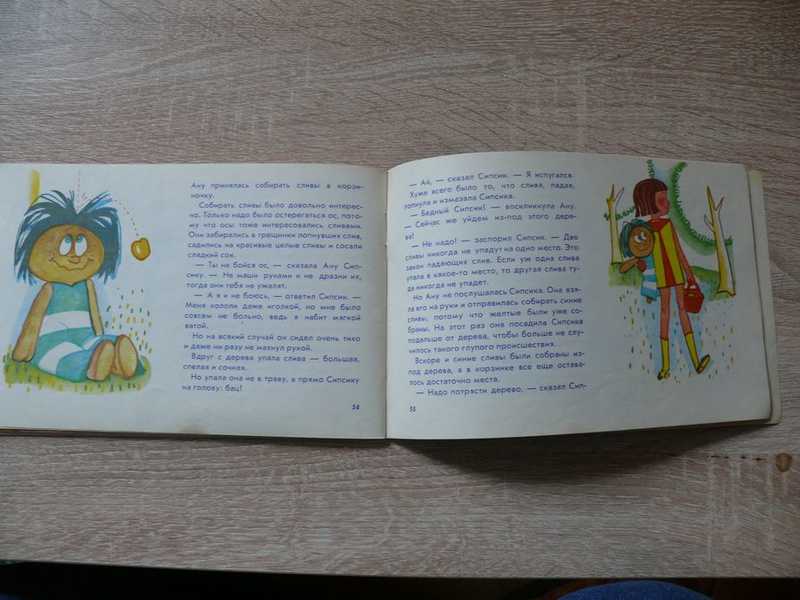 Ану принялась собирать сливы в корзи-
ночку.
Собирать сливы было довольно интерес-
но. Только надо было остерегаться ос, пото-
му что осы тоже интересовались сливами.
Они забирались в трещинки лопнувших слив,
садились на красивые целые сливы и сосали
сладкий сок.
— Ты не бойся ос, — сказала Ану Сип-
сику. — Не маши руками и не дразни их,
тогда они тебя не ужалят.
— А я и не боюсь, — ответил Сипсик. —
Меня кололи даже иголкой, но мне было
совсем не больно, ведь я набит мягкой
ватой.
Но на всякий случай он сидел очень тихо
и даже ни разу не махнул рукой.
Вдруг с дерева упала слива — большая,
спелая и сочная.
Но упала она не в траву, а прямо Сипсику
на голову: бац!
54
— Ай, — сказал Сипсик. — Я испугался.
Хуже всего было то, что слива, падая,
лопнула и измазала Сипсика.
— Бедный Сипсик! — воскликнула Ану.
— Сейчас же уйдем из-под этого дере-
ва!
— Не надо! — заспорил Сипсик. — Две
сливы никогда не упадут на одно место. Это
закон падающих слив. Если уж одна слива
упала в какое-то место, то другая слива ту-
да никогда не упадет.
Но Ану не послушалась Сипсика. Она взя-
ла его на руки и отправилась собирать синие
сливы, потому что желтые были уже со-
браны. На этот раз она посадила Сипсика
подальше от дерева, чтобы больше не слу-
чилось такого глупого происшествия.
Вскоре и синие сливы были собраны из-
под дерева, а в корзинке все еще остава-
лось достаточно места.
— Надо потрясти дерево, — сказал Сип-
55